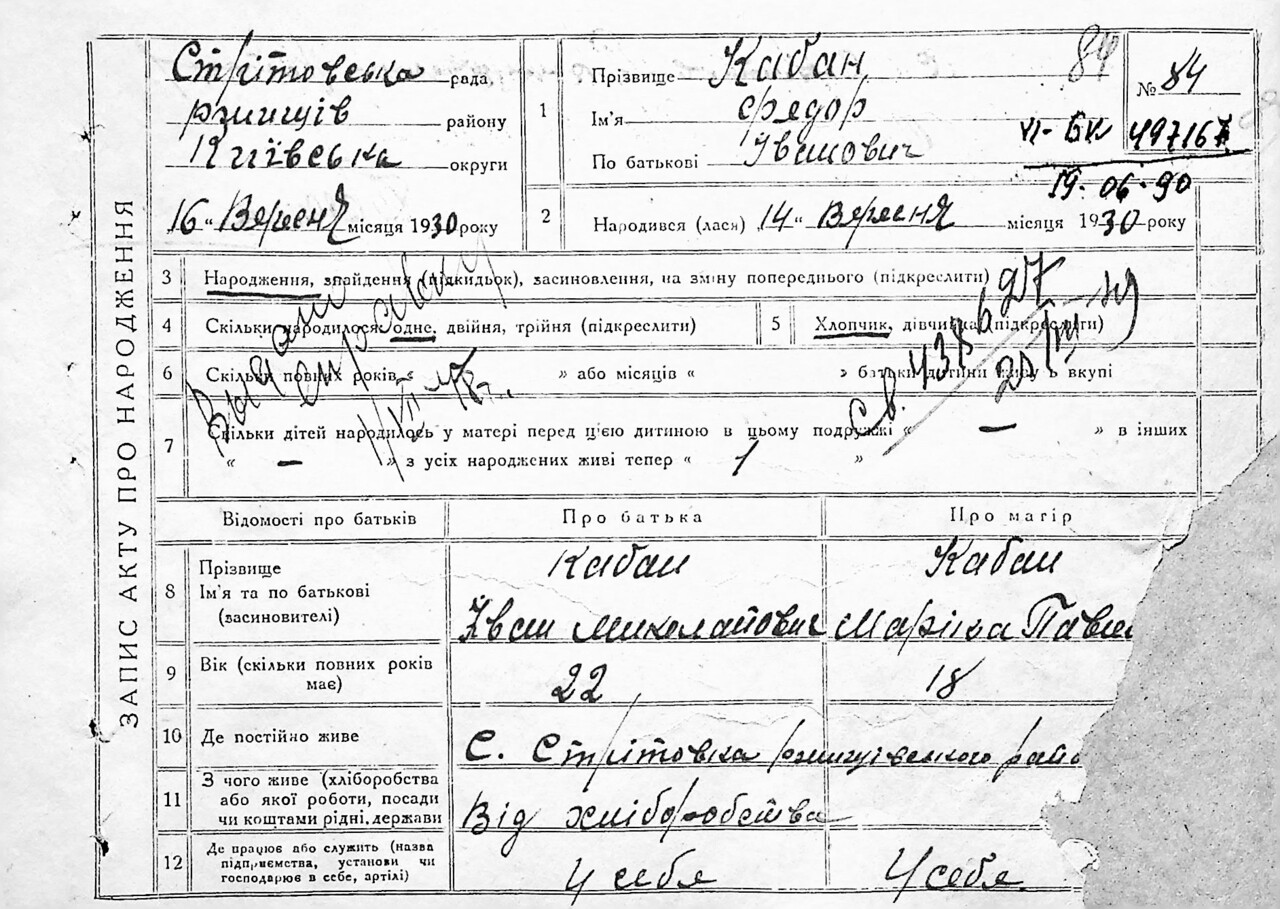 ЗАПИС АКТУ ПРО НАРОДЖЕННЯ
Стрітовська рада
ржищів району
Київська округи
16 „ Вересня місяця 1930 року
1
Прізвище Кабан
Ім'я Федор
По батькові Іванович
84
№ 84
VI-БК 497167
19.06.90
2
Народився (лася) „14„ Вересня місяця 1930 року
3 Народження, знайдення (підкидьок), засиновлення, на зміну попереднього (підкреслити)
4 Скільки народилося: одне, двійня, трійня (підкреслити)
5 Хлопчик, дівчинка (підкреслити)
6 Скільки повних років « » або місяців « » батьки дитини живу ь вкупі
7 Скільки дітей народилось у матері перед ц'єю дитиною в цьому подружжі « — » в інших
« — » з усіх народжених живі тепер « 1 »
Відомості про батьків
Про батька
Про матір
8
Прізвище
Ім'я та по батькові
(засиновителі)
Кабан
Іван Миколайович
Кабан
Маріка
9
Вік (скільки повних років
має)
22
18
10 Де постійно живе
С. Стрітовка ржищівського
11
З чого живе (хліборобства
або якої роботи, посади
чи коштами рідні, держави
Від хліборобства
12
Де працює або служить (назва
підприємства, установи чи
господарює в себе, артілі)
У себе
У себе